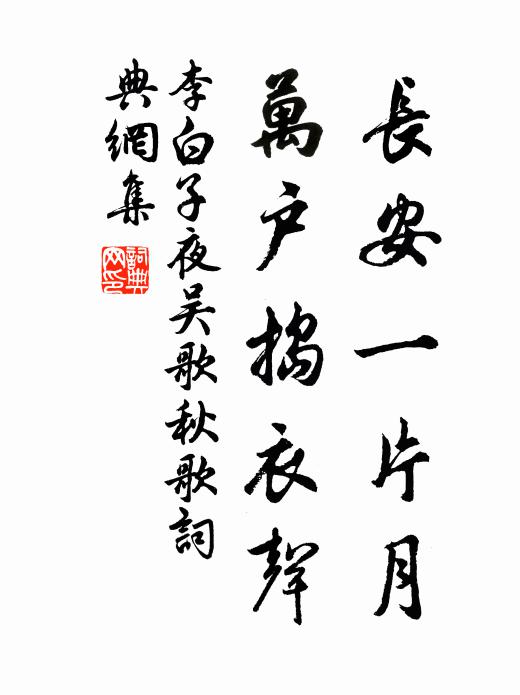 長安一片月
萬戶搗衣聲
李白子夜吴歌秋歌詞
典網集
詞典网印